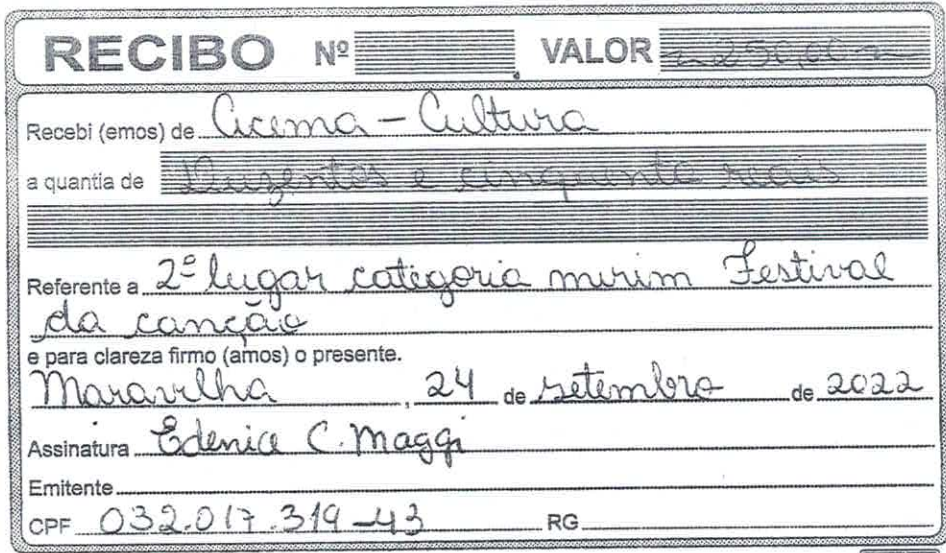 RECIBO Nº VALOR ~ 250,00 ~
Recebi (emos) de Acema - Cultura
a quantia de Duzentos e cinquenta reais
Referente a 2º lugar categoria mirim Festival
da canção
e para clareza firmo (amos) o presente.
Maravilha, 24 de setembro de 2022
Assinatura Edenice C. Maggi
Emitente
CPF 032.017.319-43 RG